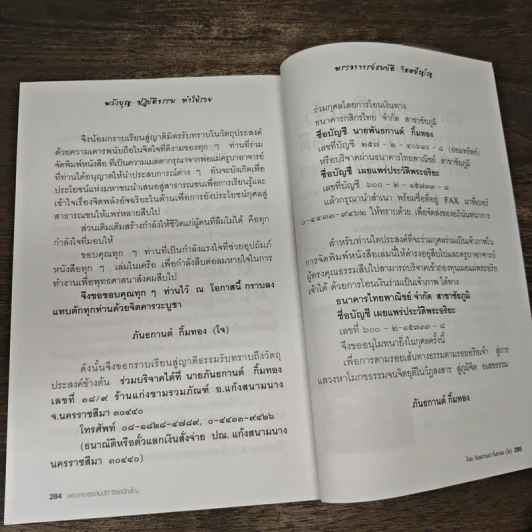 พลังบุญ ปฏิบัติธรรม ทำให้รวย
จึงน้อมกราบเรียนสู่ญาติมิตรรับทราบในวัตถุประสงค์
ด้วยความเคารพนับถือในจิตใจที่ดีงามของทุก ๆ ท่านที่ร่วม
จัดพิมพ์หนังสือ ที่เป็นความเมตตากรุณาจากพ่อแม่ครูบาอาจารย์
ที่ท่านได้อนุญาตให้นำประสบการณ์ต่าง ๆ อันจะบังเกิดเพื่อ
ประโยชน์แห่งมหาชนนำเสนอสู่สาธารณชนเพื่อการเรียนรู้และ
เข้าใจเรื่องจิตพลังอัจฉริยะในด้านเพื่อการยังประโยชน์กุศลสู่
สาธารณชนให้แพร่หลายสืบไป
ส่วนเติมเต็มสร้างกำลังให้ชีวิตแก่ผู้คนที่ลืมไม่ได้ คือทุก
กำลังใจที่มอบให้
ขอบคุณทุก ๆ ท่านที่เป็นกำลังแรงใจที่ช่วยอุปถัมภ์
หนังสือทุก ๆ เล่มในเครือ เพื่อกำลังสืบต่อลมหายใจในการ
ทำงานเพื่อพุทธศาสนาสังคมสืบไป
จึงขอขอบคุณทุก ๆ ท่านไว้ ณ โอกาสนี้ กราบลง
แทบตักทุกท่านด้วยจิตคารวะบูชา
ภันธกานต์ กิ้มทอง (โจ)
ดังนั้นจึงขอกราบเรียนสู่ญาติธรรมรับทราบถึงวัตถุ
ประสงค์ข้างต้น ร่วมบริจาคได้ที่ นายภันธกานต์ กิ้มทอง
เลขที่ ๓๘/๙ ร้านแก่งขามรวมภัณฑ์ อ.แก้งสนามนาง
จ.นครราชสีมา ๓๐๔๔๐
โทรศัพท์ ๐๘-๑๘๒๘-๔๗๘๙, ๐-๔๔๓๓-๙๔๒๖
(ธนาณัติหรือตั๋วแลกเงินสั่งจ่าย ปณ. แก้งสนามนาง
นครราชสีมา ๓๐๔๔๐)
284 พระอาจารย์สมบัติ จิตตปัญโญ
พระอาจารย์สมบัติ จิตตปัญโญ
ร่วมกุศลโดยการโอนเงินทาง
ธนาคารกสิกรไทย จำกัด สาขาชัยภูมิ
ชื่อบัญชี นายพันธกานต์ กิ้มทอง
เลขที่บัญชี ๒๕๗ - ๒ - (ออมทรัพย์)
หรือบริจาคผ่านธนาคารไทยพาณิชย์ สาขาชัยภูมิ
ชื่อบัญชี เผยแพร่ประวัติพระอริยะ
เลขที่บัญชี ๖๐๐ - ๒ - ๑๕๗๓๓ - ๘
แล้วกรุณานำสำเนา พร้อมชื่อที่อยู่ FAX มาที่เบอร์
๐-๔๔๓๓-๙๔๒๖ ให้ทราบด้วย เพื่อจัดส่งของอภินันทนาการ
สำหรับท่านใดประสงค์ที่จะร่วมกุศลร่วมเป็นเจ้าภาพใน
การจัดพิมพ์หนังสือเล่มนี้ให้ดำรงอยู่สืบไปและครูบาอาจารย์
ผู้ทรงคุณธรรมสืบไปสามารถบริจาคเข้ากองทุนเผยแผ่พระอริย
เจ้าได้ ด้วยการโอนเงินร่วมเป็นเจ้าภาพ ได้ทาง
ธนาคารไทยพาณิชย์ จำกัด สาขาชัยภูมิ
ชื่อบัญชี เผยแพร่ประวัติพระอริยะ
เลขที่ ๖๐๐ - ๒ - ๑๕๗๓๓ - ๘
จึงขออนุโมทนายิ่งในกุศลครั้งนี้
เพื่อการตามรอยเส้นทางธรรมตามรอยอริยเจ้า สู่การ
แสวงหาโมกขธรรมจนจิตยุติในวัฏสงสาร สู่ภูมิจิต
ภันธกานต์ กิ้มทอง
โดย ภันธกานต์ กิ้มทอง (โจ) 285